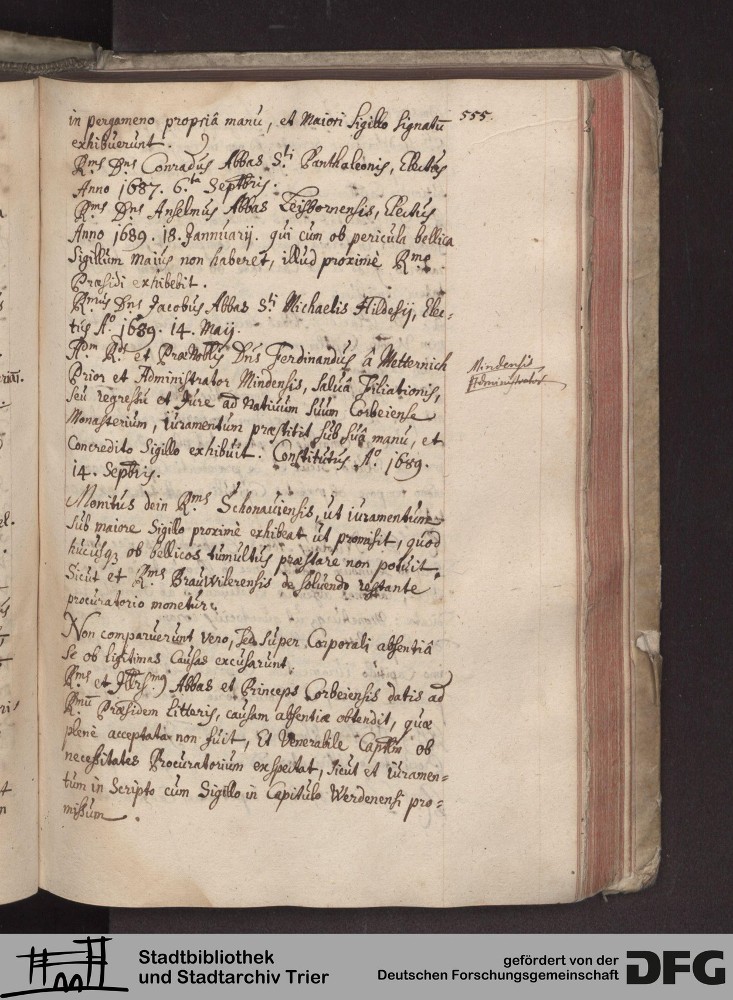 555.
in pergameno propriâ manu, et Maiori Sigillo Signatū
exhibuerunt.
Rms Dns Conradus Abbas Sti Panthaleonis, Electus
Anno 1687. 6.ta Septbris.
Rms Dns Anselmus Abbas Leisbornensis, Electus
Anno 1689. 18. Jannuarij. qui cum ob pericula bellica
Sigillum maius non haberet, illud proximè Rmo
Præsidi exhibebit.
Rmus Dns Jacobus Abbas Sti Michaelis Hildesij, Elec=
tus Ao 1689. 14. Maij.
Adm Rds et PræNobilis Dns Ferdinandus â Metternich
Prior et Administrator Mindensis, Salvâ Filiationis,
seu regressu et Jure ad Nativum Suum Corbeiense
Monasterium, iuramentum præstitit sub suâ manu, et
Concredito Sigillo exhibuit. Constitutus Ao 1689.
14. Septbris.
Mindensis
Administrator
Monitus dein Rms Schonauiensis, ut iuramentum
sub maiore Sigillo proximè exhibeat ut promisit, quod
hucusq3 ob bellicos tumultus præstare non potuit,
Sicut et Rms Brauwilerensis de solvendo restante
procuratorio monetur.
Non comparuerunt vero, sed super Corporali absentiâ
se ob ligitimas Causas excusarunt.
Rms et Abbas et Princeps Corbeiensis datis ad
Rmū Præsidem litteris, causam absentiæ obtendit, quæ
plenè acceptata non fuit, Et Venerabile Captlm ob
necessitates Procuratorium exspectat, sicut et iuramen=
tum in Scripto cum Sigillo in Capitulo Werdenensi pro=
missum.
Stadtbibliothek
und Stadtarchiv Trier
gefördert von der
Deutschen Forschungsgemeinschaft
DFG